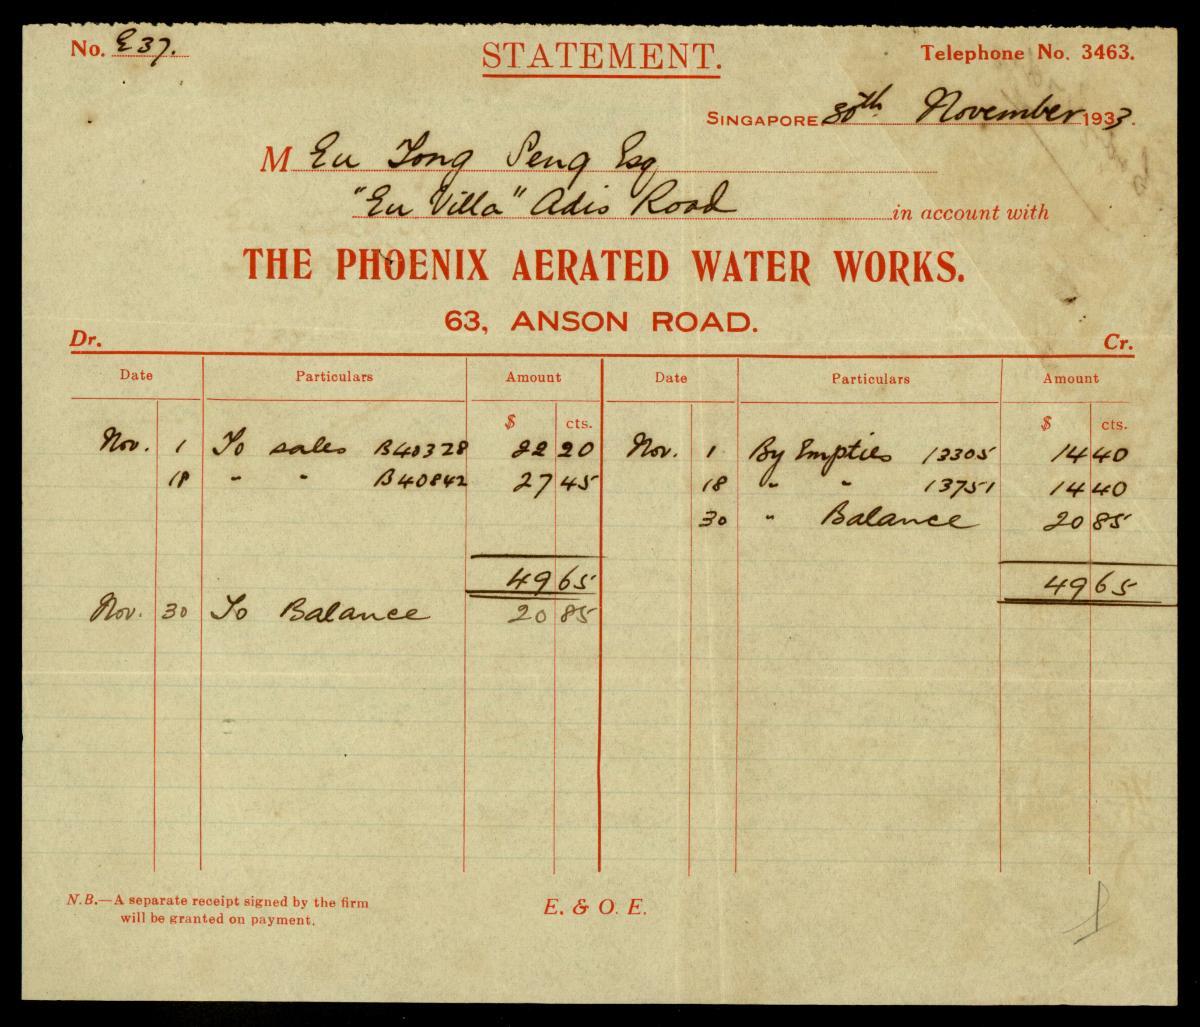 No. E37.
STATEMENT.
Telephone No. 3463.
SINGAPORE, 30th November 1933.
M Eu Tong Seng Esq
"Eu Villa" Adis Road in account with
THE PHOENIX AERATED WATER WORKS.
63, ANSON ROAD.
Dr. Cr.
Date Particulars Amount Date Particulars Amount
$ cts. $ cts.
Nov. 1 To sales B40328 22 20 Nov. 1 By Empties 13305 14 40
18 " " B40842 27 45 18 " " 13751 14 40
30 " Balance 20 85
49 65 49 65
Nov. 30 To Balance 20 85
N.B.—A separate receipt signed by the firm
will be granted on payment.
E. & O. E.